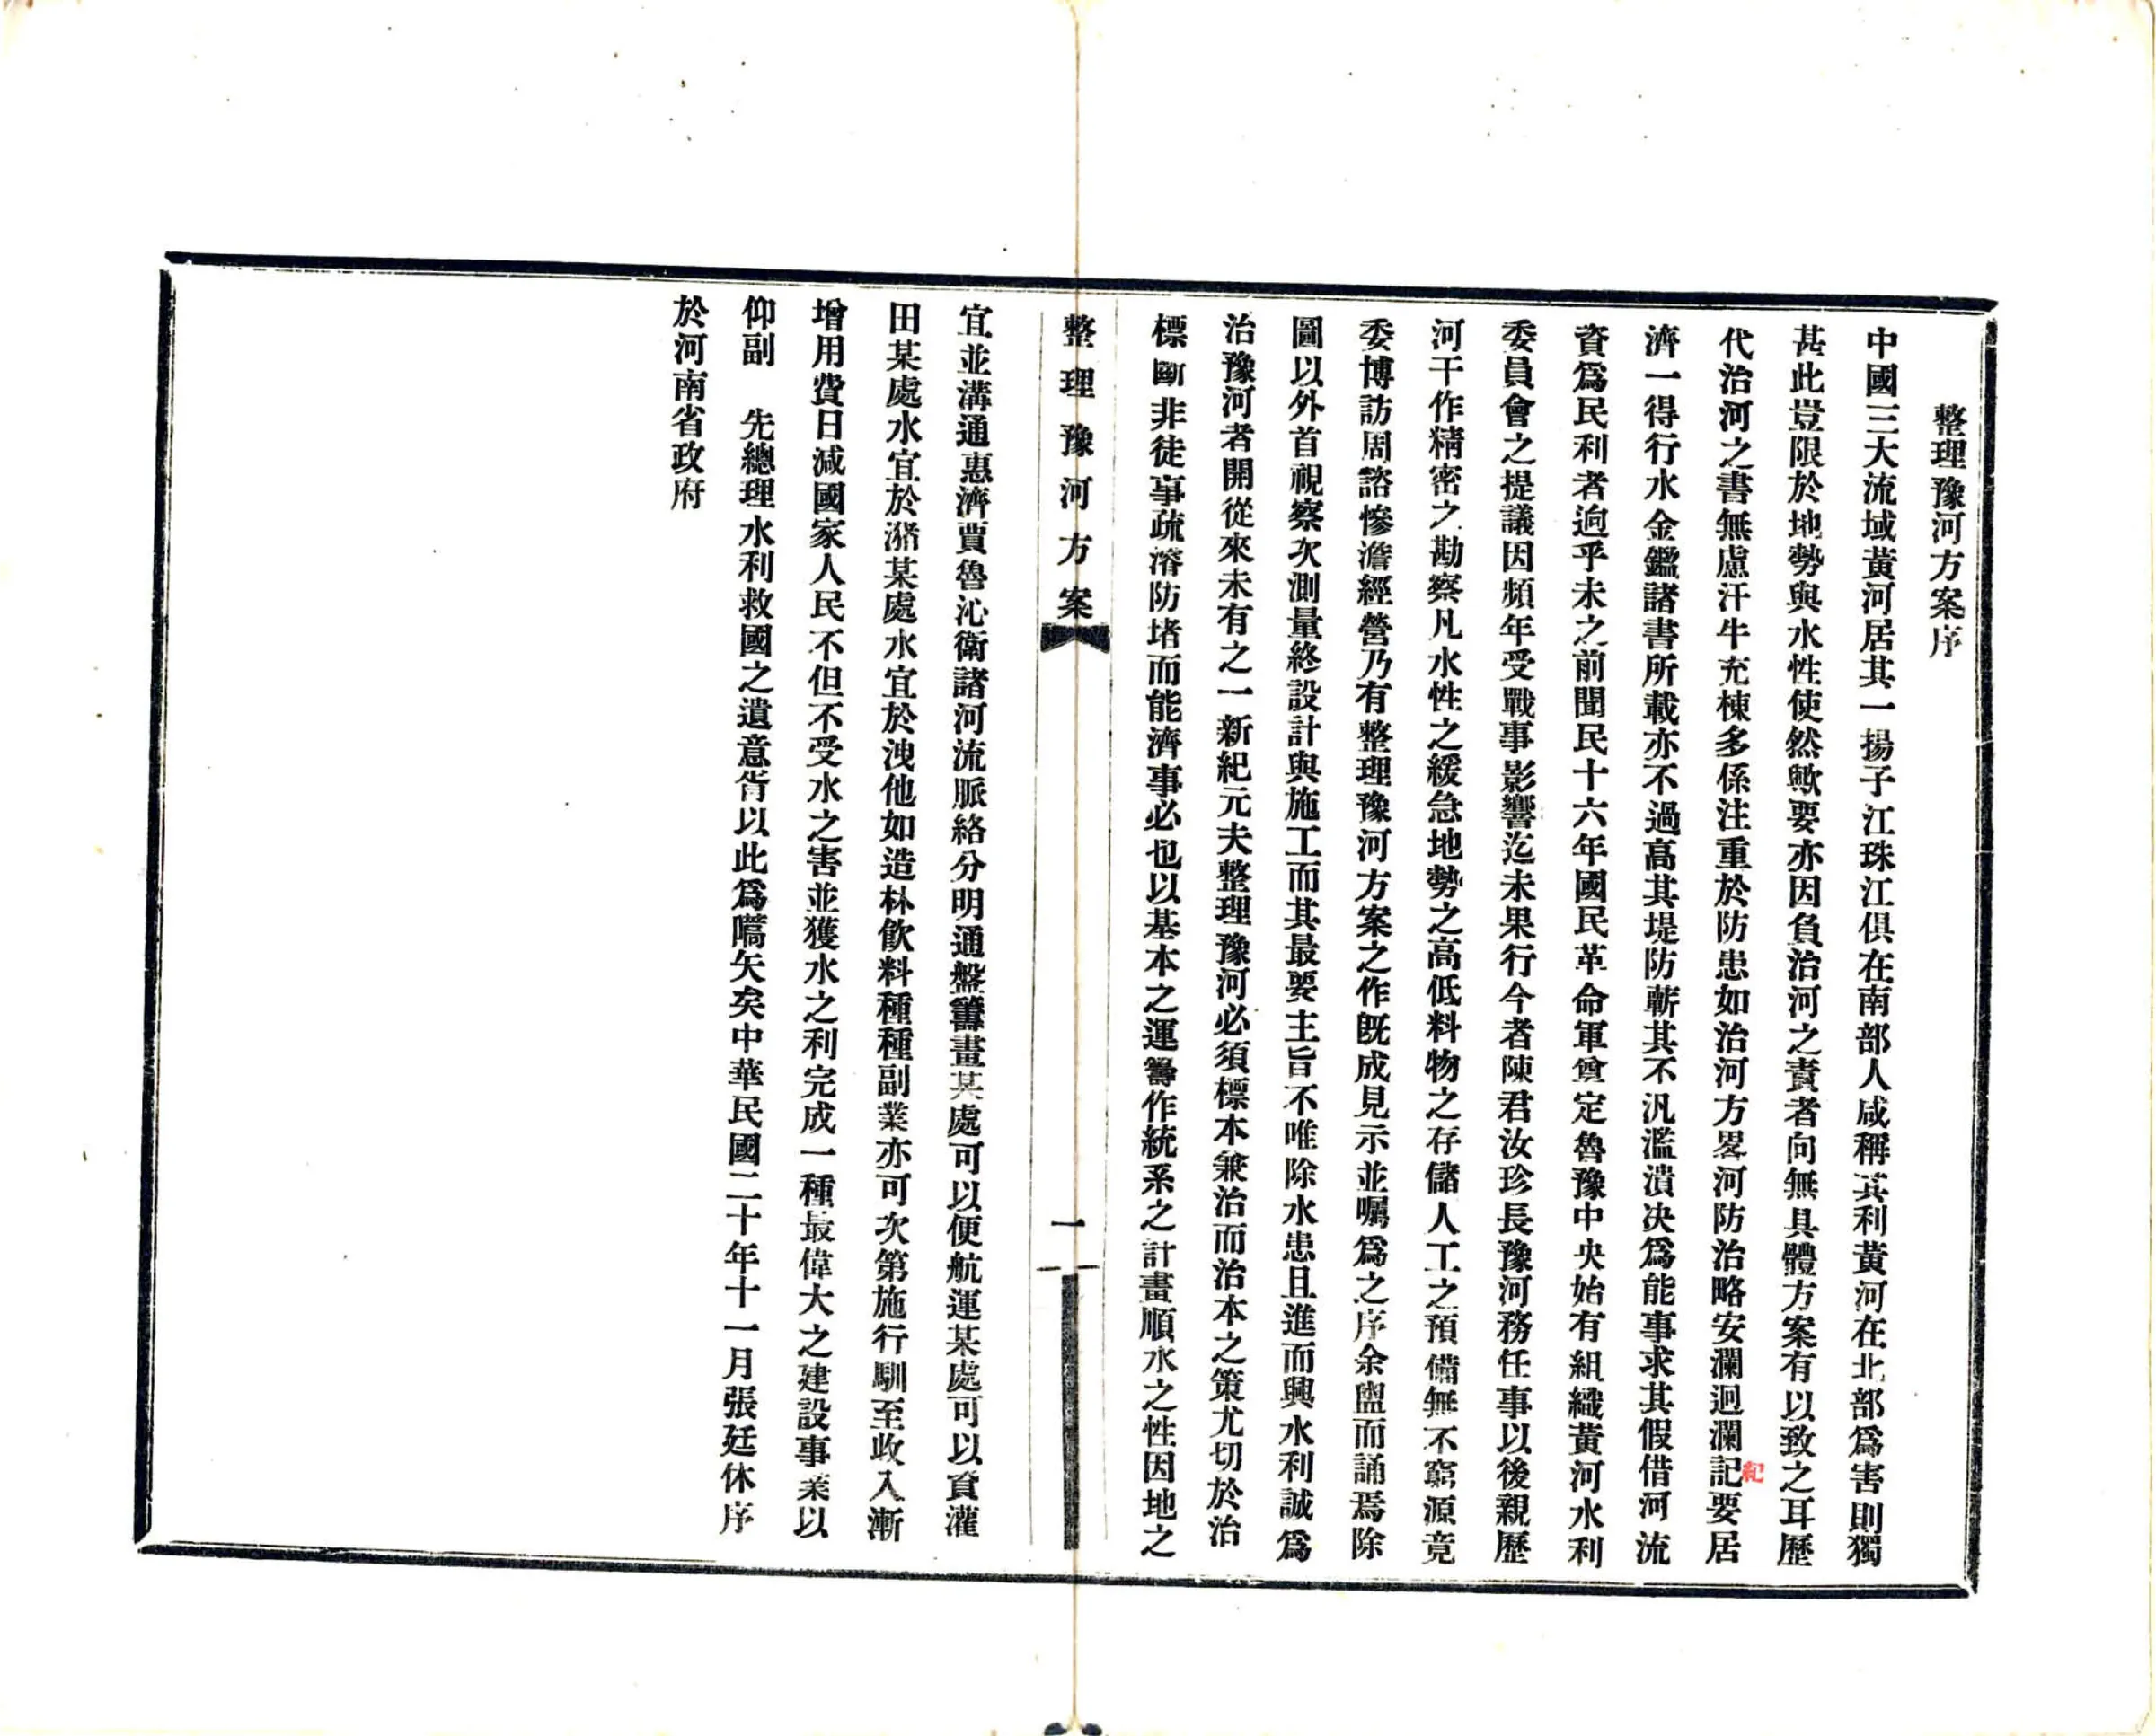 整理豫河方案序
中國三大流域黃河居其一揚子江珠江俱在南部人咸稱其利黃河在北部爲害則獨
甚此豈限於地勢與水性使然歟要亦因負治河之責者向無具體方案有以致之耳歷
代治河之書無慮汗牛充棟多係注重於防患如治河方畧河防治略安瀾迴瀾記要居
紀
濟一得行水金鑑諸書所載亦不過高其堤防蘄其不汎濫潰決爲能事求其假借河流
資爲民利者迨乎未之前聞民十六年國民革命軍奠定魯豫中央始有組織黃河水利
委員會之提議因頻年受戰事影響迄未果行今者陳君汝珍長豫河務任事以後親歷
河干作精密之勘察凡水性之緩急地勢之高低料物之存儲人工之預備無不窮源竟
委博訪周諮慘澹經營乃有整理豫河方案之作既成見示並囑爲之序余盥而誦焉除
圖以外首視察次測量終設計與施工而其最要主旨不唯除水患且進而興水利誠爲
治豫河者開從來未有之一新紀元夫整理豫河必須標本兼治而治本之策尤切於治
標斷非徒事疏濬防堵而能濟事必也以基本之運籌作統系之計畫順水之性因地之
整理豫河方案
一
宜並溝通惠濟賈魯沁衛諸河流脈絡分明通盤籌畫某處可以便航運某處可以資灌
田某處水宜於瀦某處水宜於洩他如造林飲料種種副業亦可次第施行馴至收入漸
增用費日減國家人民不但不受水之害並獲水之利完成一種最偉大之建設事業以
仰副　先總理水利救國之遺意胥以此爲嚆矢矣中華民國二十年十一月張廷休序
於河南省政府